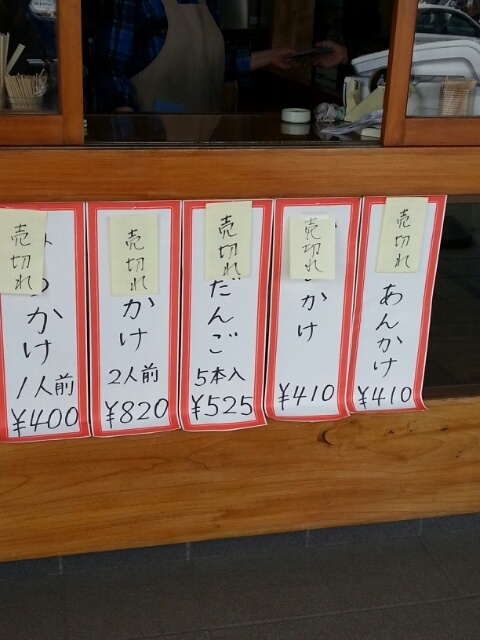 売切れ
かけ
1人前
¥400
売切れ
かけ
2人前
¥820
売切れ
だんご
5本入
¥525
売切れ
かけ
¥410
売切れ
あんかけ
¥410